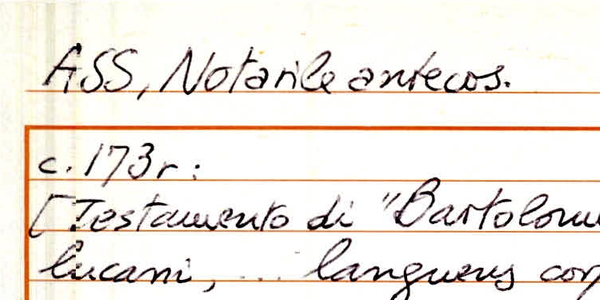 ASS, Notarile antecos.
c. 173r:
[Testamento di "Bartolom
lucani, ... languens cor